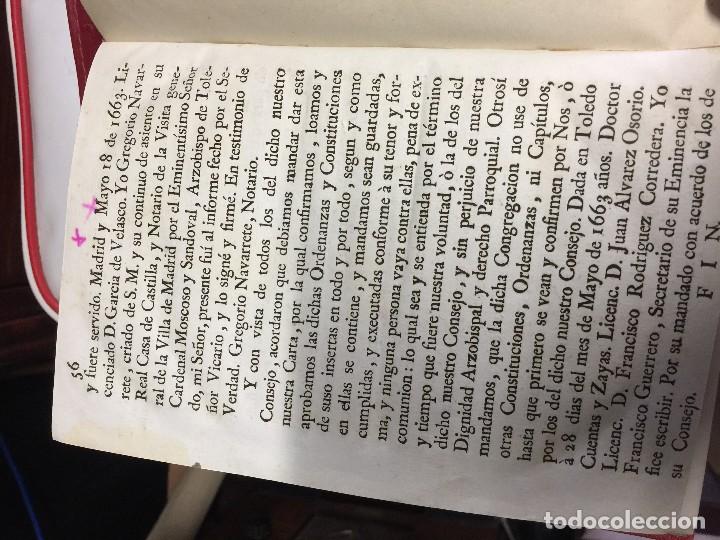 56
y fuere servido. Madrid y Mayo 18 de 1663. Li-
cenciado D. Garcia de Velasco. Yo Gregorio Navar-
rete, criado de S. M. y su continuo de asiento en su
Real Casa de Castilla, y Notario de la Visita gene-
ral de la Villa de Madrid por el Eminentísimo Señor
Cardenal Moscoso y Sandoval, Arzobispo de Tole-
do, mi Señor, presente fui al informe fecho por el Se-
ñor Vicario, y lo signé y firmé. En testimonio de
Verdad. Gregorio Navarrete, Notario.
Y con vista de todos los del dicho nuestro
Consejo, acordaron que debiamos mandar dar esta
nuestra Carta, por la qual confirmamos, loamos y
aprobamos las dichas Ordenanzas y Constituciones
de suso insertas en todo y por todo, segun y como
en ellas se contiene, y mandamos sean guardadas,
cumplidas, y executadas conforme à su tenor y for-
ma, y ninguna persona vaya contra ellas, pena de ex-
comunion: lo qual sea y se entienda por el término
y tiempo que fuere nuestra voluntad, ò la de los del
dicho nuestro Consejo, y sin perjuicio de nuestra
Dignidad Arzobispal y derecho Parroquial. Otrosí
mandamos, que la dicha Congregacion no use de
otras Constituciones, Ordenanzas, ni Capitulos,
hasta que primero se vean y confirmen por Nos, ò
por los del dicho nuestro Consejo. Dada en Toledo
à 28 dias del mes de Mayo de 1663 años. Doctor
Cuentas y Zayas. Licenc. D. Juan Alvarez Osorio.
Licenc. D. Francisco Rodriguez Corredera. Yo
Francisco Guerrero, Secretario de su Eminencia la
fice escribir. Por su mandado con acuerdo de los de
su Consejo.
F I N.
todocoleccion